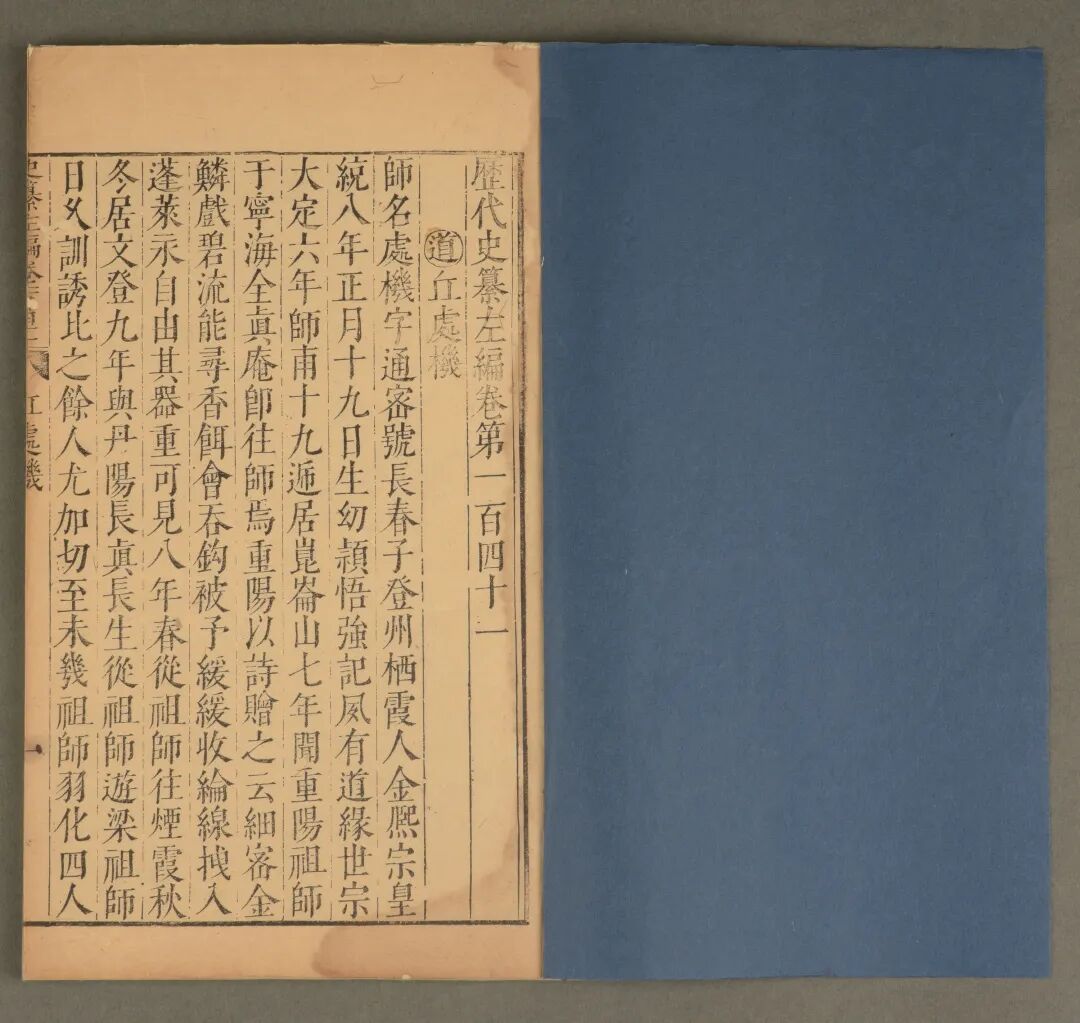 歷代史纂左編卷第一百四十一
道 丘處機
師名處機字通密號長春子登州栖霞人金熈宗皇
統八年正月十九日生幼頴悟強記夙有道緣世宗
大定六年師甫十九遁居崑崙山七年聞重陽祖師
于寧海全眞庵卽往師焉重陽以詩贈之云細密金
鱗戲碧流能尋香餌會吞鈎被予緩緩收綸線拽入
蓬萊示自由其器重可見八年春從祖師往煙霞秋
冬居文登九年與丹陽長眞長生從祖師遊梁祖師
日夕訓誘比之餘人尤加切至未幾祖師羽化四人
史纂左編卷 丘處機 一